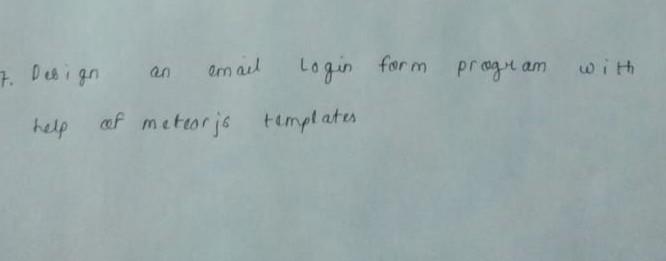 7. Design an email Login form program with
help of meteorjs templates